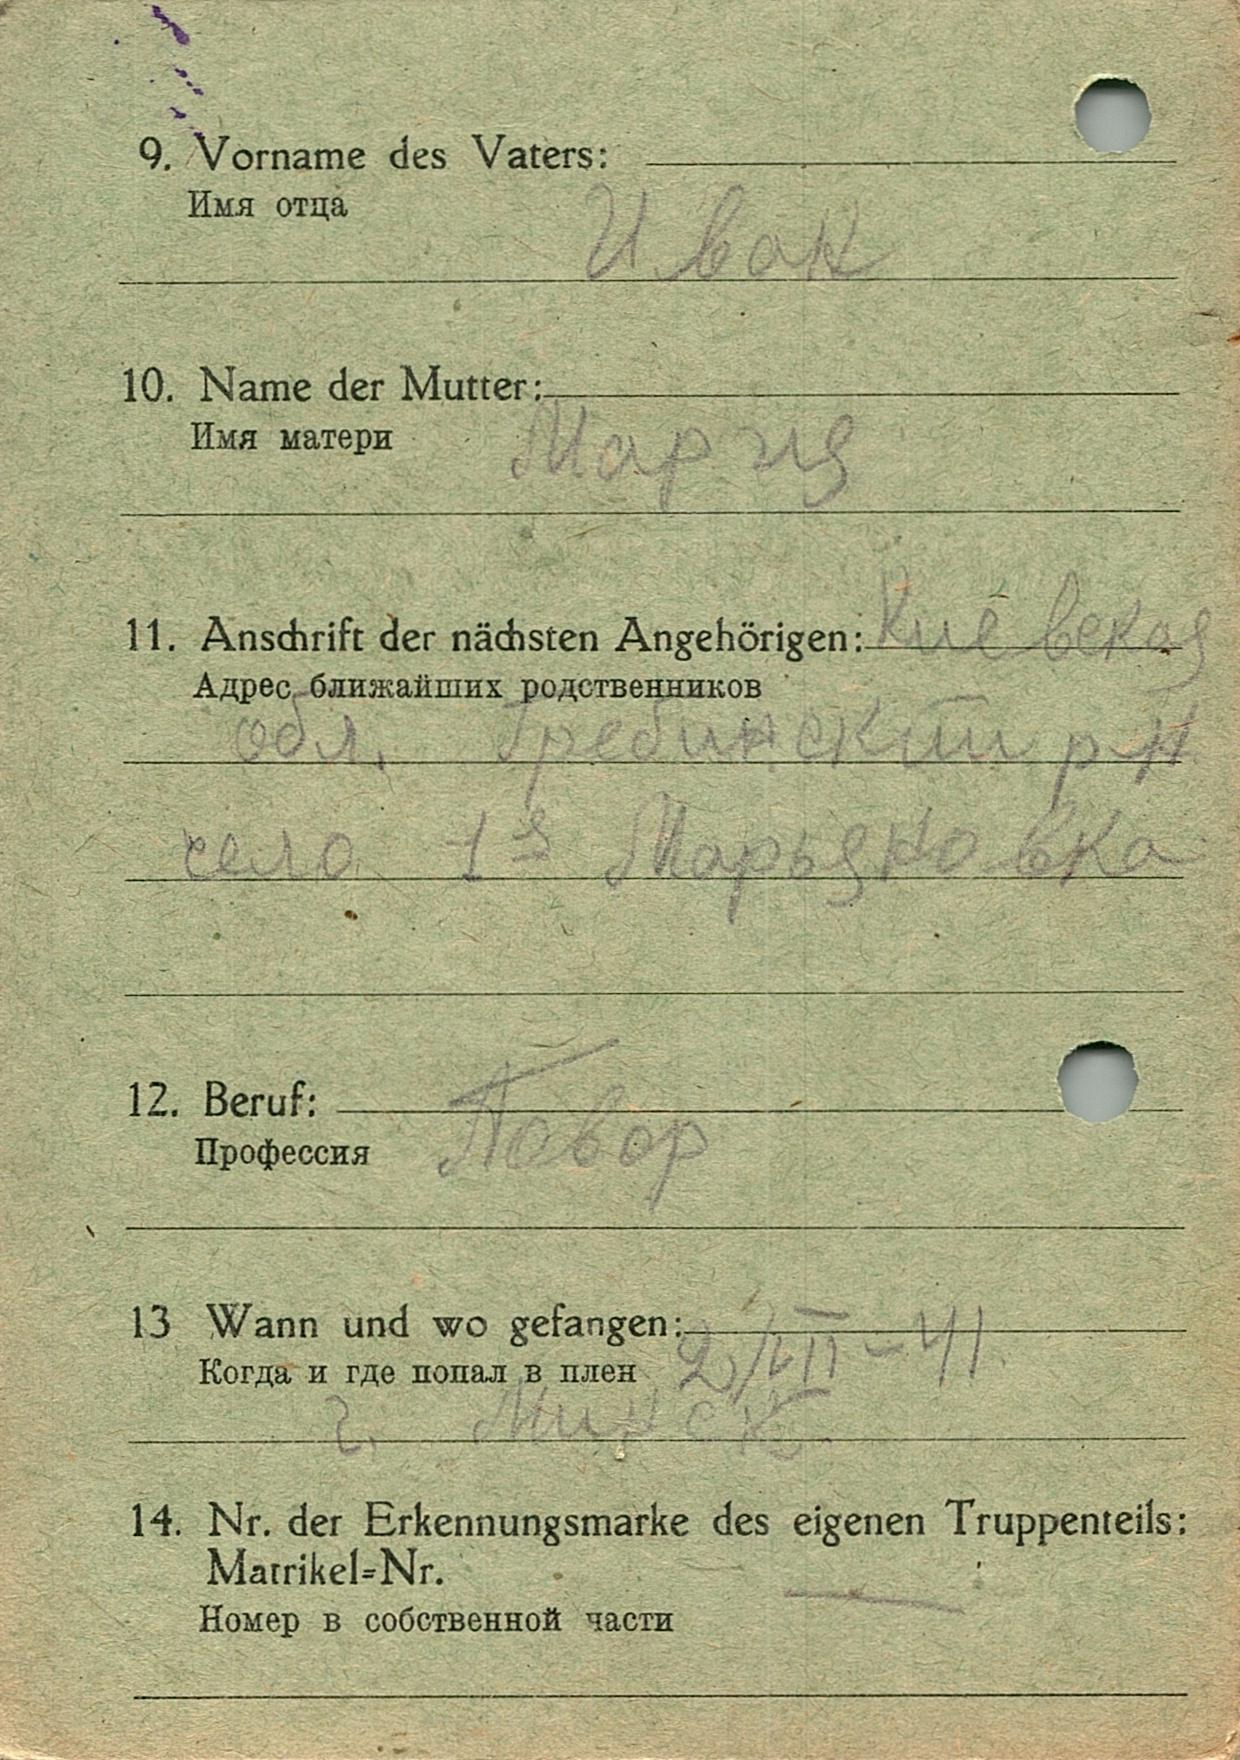 9. Vorname des Vaters:
Имя отца
Иван
10. Name der Mutter:
Имя матери
Мария
11. Anschrift der nächsten Angehörigen: Киевская
Адрес ближайших родственников
обл. Гребинский р-н
село 1я Марьяновка
12. Beruf:
Профессия
Повор
13 Wann und wo gefangen:
Когда и где попал в плен 2/VII-41
г. Минск.
14. Nr. der Erkennungsmarke des eigenen Truppenteils:
Matrikel=Nr. —
Номер в собственной части